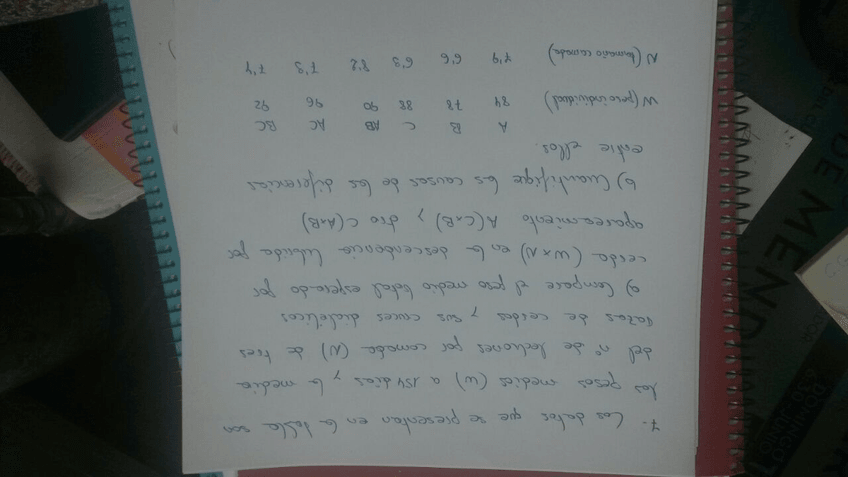 7- Los datos que se presentan en la tabla son
los pesos medios (W) a 154 días y la media
del nº de lechones por camada (N) de tres
razas de cerdos y sus cruces dialélicos
a) Compare el peso medio total esperado por
cerda (W x N) en la descendencia híbrida por
apareamiento A(CxB) y dro C(AxB)
b) Cuantifique las causas de las diferencias
entre ellos.
A B C AB AC BC
W (peso individual) 84 78 88 90 96 92
N (tamaño camada) 6'6 6'3 8'2 7'3 7'4
DE MEN
DOMINGO